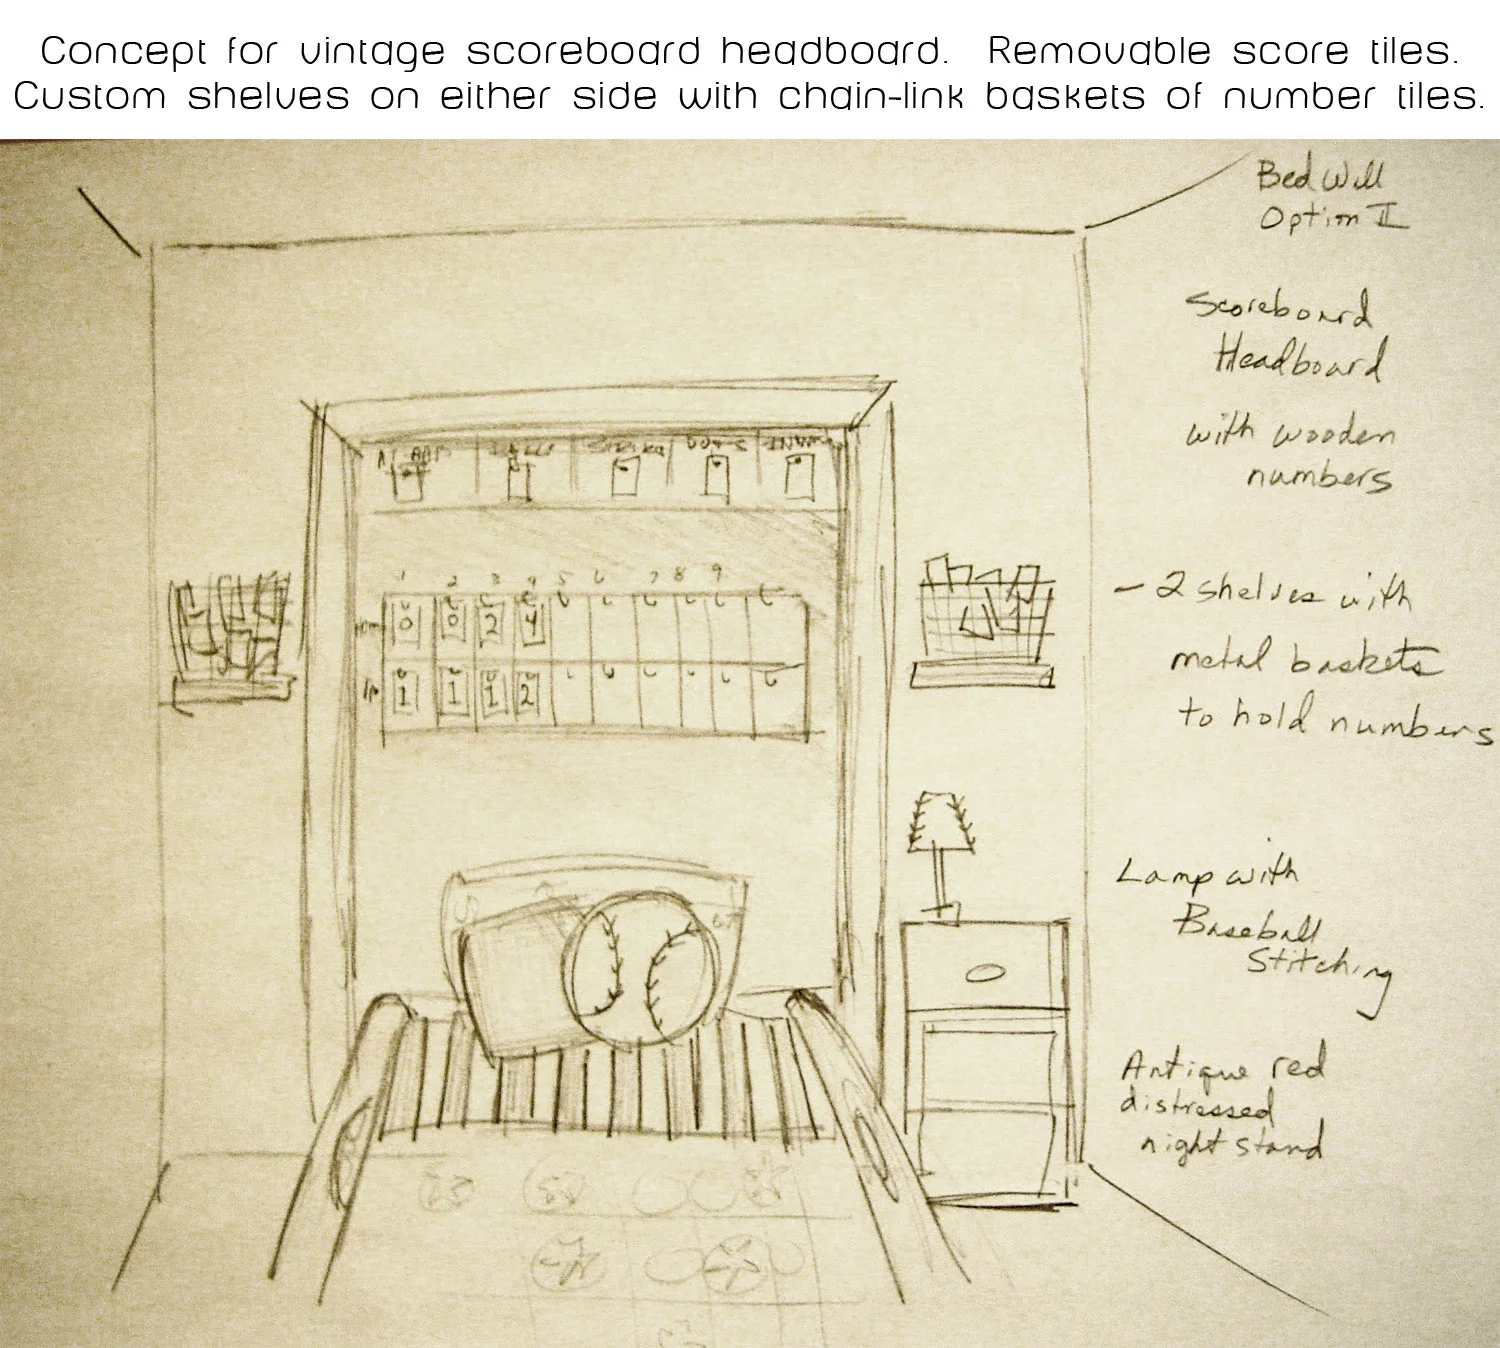 Concept for vintage scoreboard headboard. Removable score tiles.
Custom shelves on either side with chain-link baskets of number tiles.
Bed Wall
Option II
Scoreboard
Headboard
with wooden
numbers
- 2 shelves with
metal baskets
to hold numbers
1 2 3 4 5 6 7 8 9
0 0 2 4
1 1 1 2
Lamp with
Baseball
Stitching
Antique red
distressed
night stand